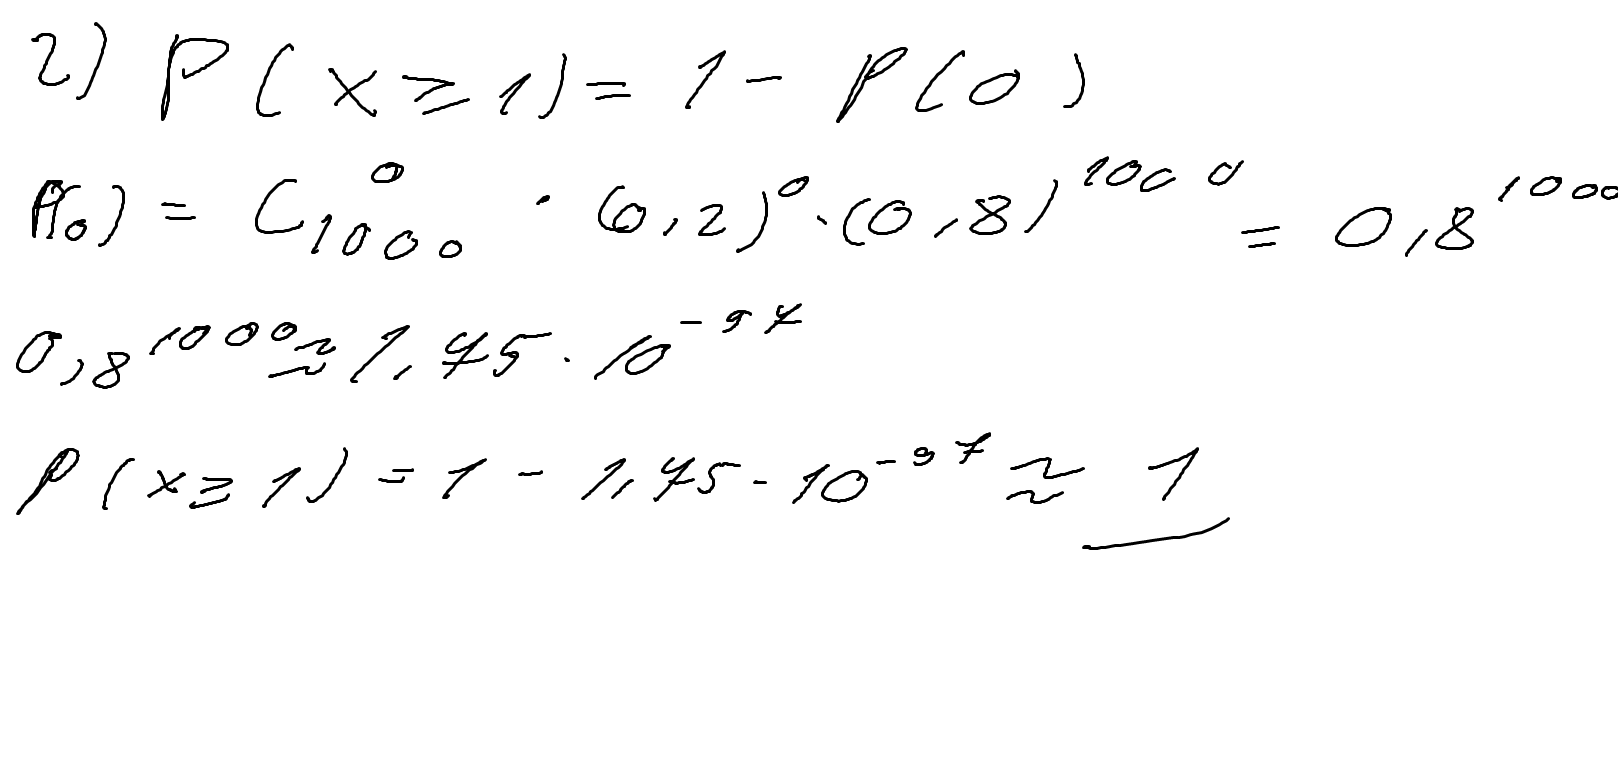 2) P(x ≥ 1) = 1 - P(0)
P(0) = C₁₀₀₀⁰ · (0,2)⁰ · (0,8)¹⁰⁰⁰ = 0,8¹⁰⁰⁰
0,8¹⁰⁰⁰ ≈ 1,75 · 10⁻⁹⁷
P(x ≥ 1) = 1 - 1,75 · 10⁻⁹⁷ ≈ 1